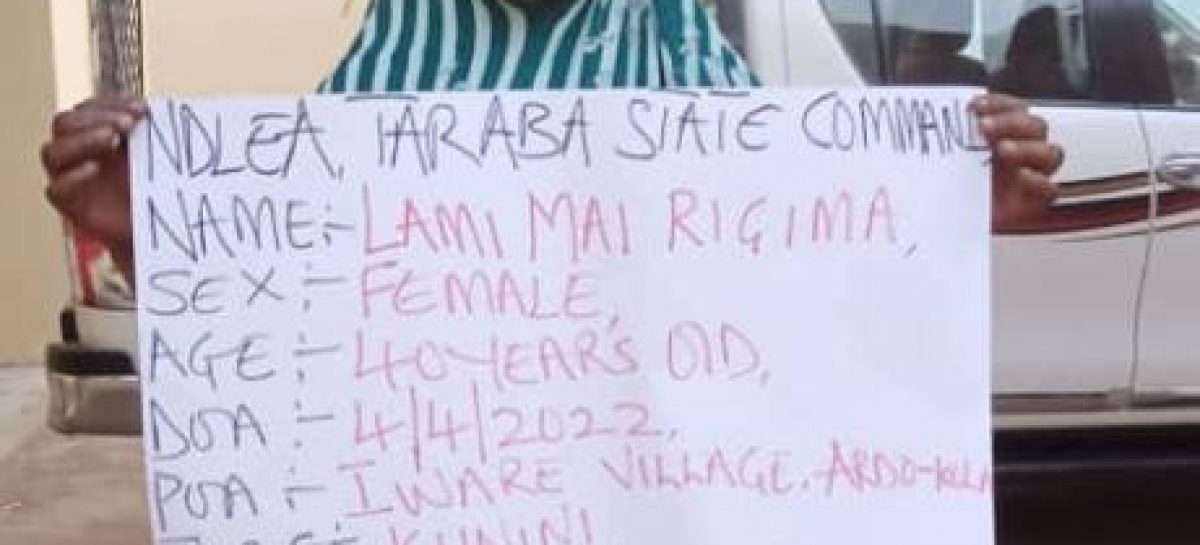 NDLEA, TARABA STATE COMMAND,
NAME:- LAMI MAI RIGIMA,
SEX:- FEMALE,
AGE:- 40 YEAR'S OLD,
DOA:- 4/4/2022,
POA:- IWARE VILLAGE. ARDO-KOLA
KUNINI